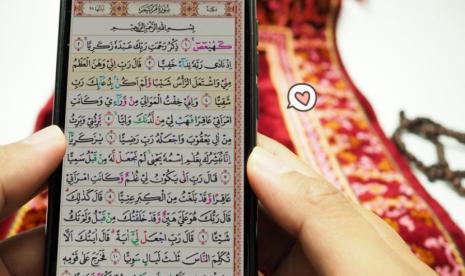 بِسْمِ اللَّهِ الرَّحْمَٰنِ الرَّحِيمِ
كٓهيعٓصٓ ١ ذِكْرُ رَحْمَتِ رَبِّكَ عَبْدَهُ زَكَرِيَّا ٢
إِذْ نَادَىٰ رَبَّهُ نِدَآءً خَفِيًّا ٣ قَالَ رَبِّ إِنِّي وَهَنَ الْعَظْمُ
مِنِّي وَاشْتَعَلَ الرَّأْسُ شَيْبًا وَلَمْ أَكُنْ بِدُعَآئِكَ رَبِّ
شَقِيًّا ٤ وَإِنِّي خِفْتُ الْمَوَالِيَ مِنْ وَرَآءِي وَكَانَتِ
امْرَأَتِي عَاقِرًا فَهَبْ لِي مِنْ لَدُنْكَ وَلِيًّا ٥ يَرِثُنِي وَيَرِثُ
مِنْ آلِ يَعْقُوبَ وَاجْعَلْهُ رَبِّ رَضِيًّا ٦ يَٰزَكَرِيَّآ
إِنَّا نُبَشِّرُكَ بِغُلَٰمٍ اسْمُهُ يَحْيَىٰ لَمْ نَجْعَلْ لَهُ مِنْ قَبْلُ سَمِيًّا ٧
قَالَ رَبِّ أَنَّىٰ يَكُونُ لِي غُلَٰمٌ وَكَانَتِ امْرَأَتِي
عَاقِرًا وَقَدْ بَلَغْتُ مِنَ الْكِبَرِ عِتِيًّا ٨ قَالَ كَذَٰلِكَ
قَالَ رَبُّكَ هُوَ عَلَيَّ هَيِّنٌ وَقَدْ خَلَقْتُكَ مِنْ قَبْلُ وَلَمْ تَكُ
شَيْئًا ٩ قَالَ رَبِّ اجْعَلْ لِي آيَةً قَالَ آيَتُكَ أَلَّا
تُكَلِّمَ النَّاسَ ثَلَٰثَ لَيَالٍ سَوِيًّا ١٠ فَخَرَجَ عَلَىٰ قَوْمِهِ